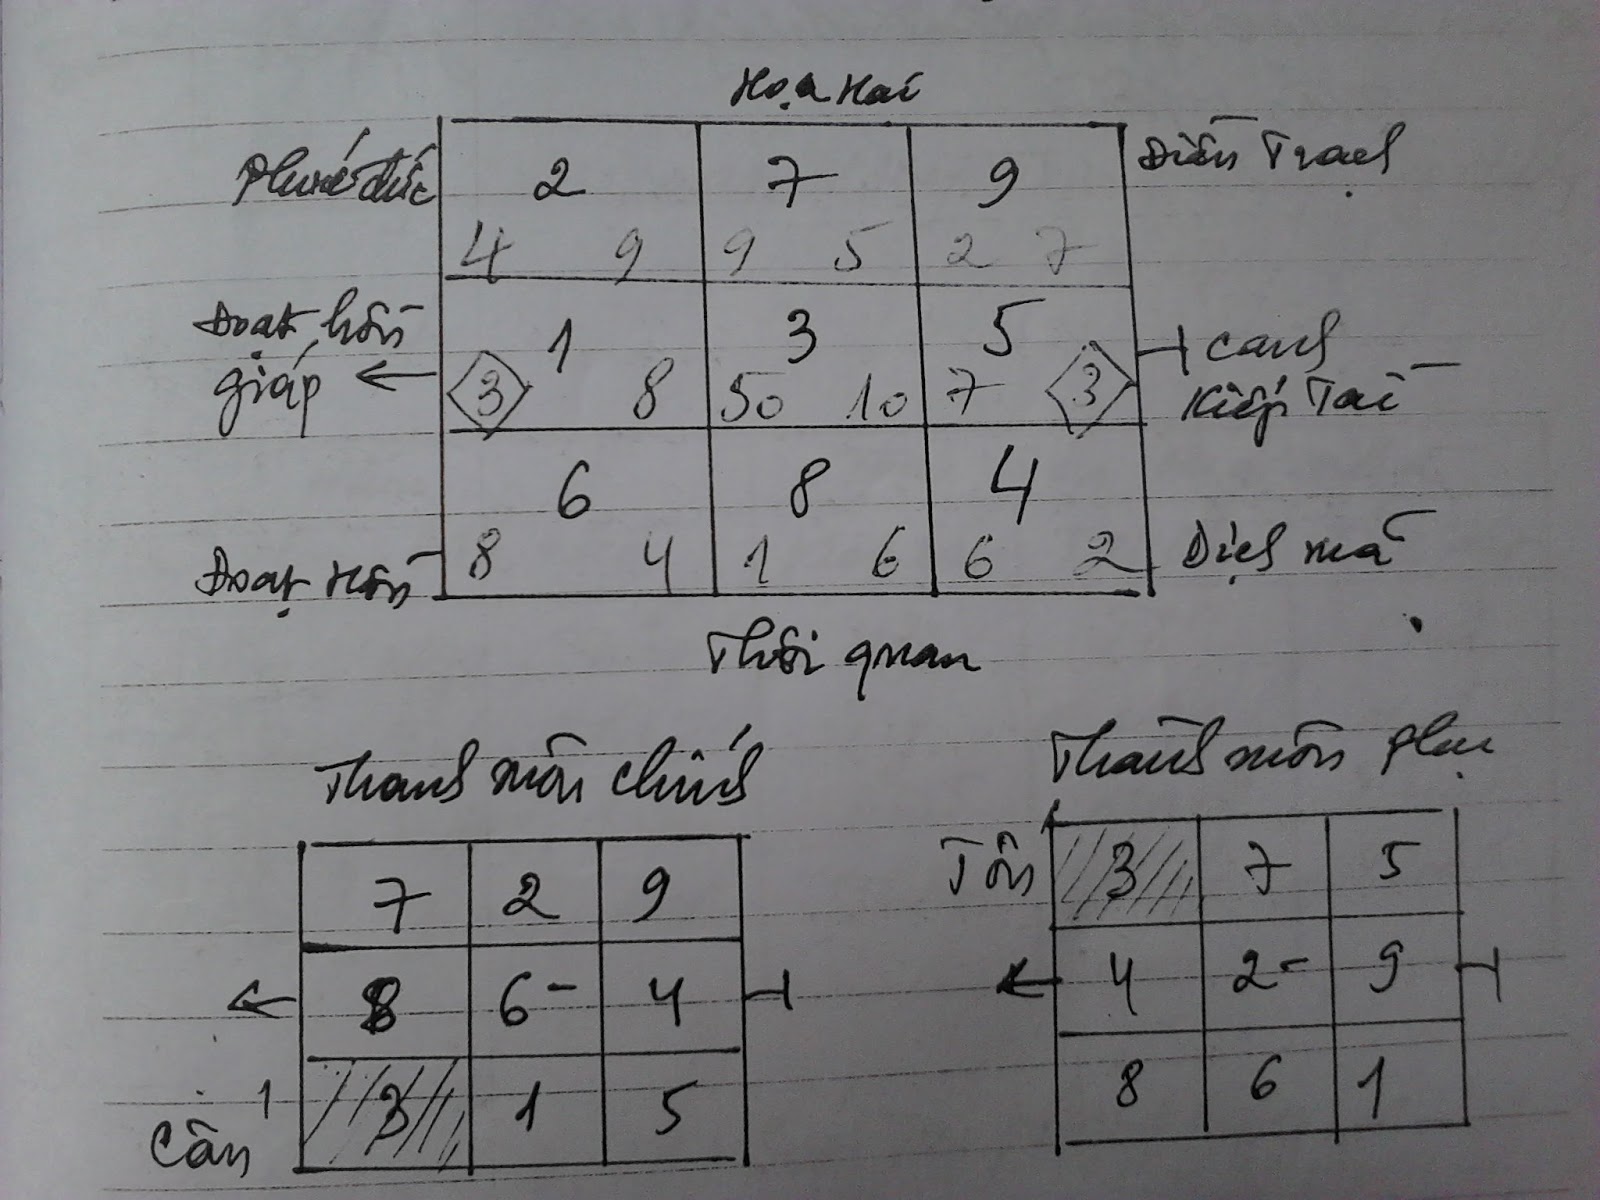 Họa Hại
Phước đức 2 7 9 Điền Trạch
4 9 9 5 2 7
Đoạt hồn 1 3 5 canh
giáp 3 8 50 10 7 3 Kiếp Tài
6 8 4
Đoạt Hồn 8 4 1 6 6 2 Dịch mã
Thôi quan
Thành môn chính
7 2 9
8 6- 4
3 1 5
1
Cấn
Thành môn phụ
Tốn 3 7 5
4 2- 9
8 6 1